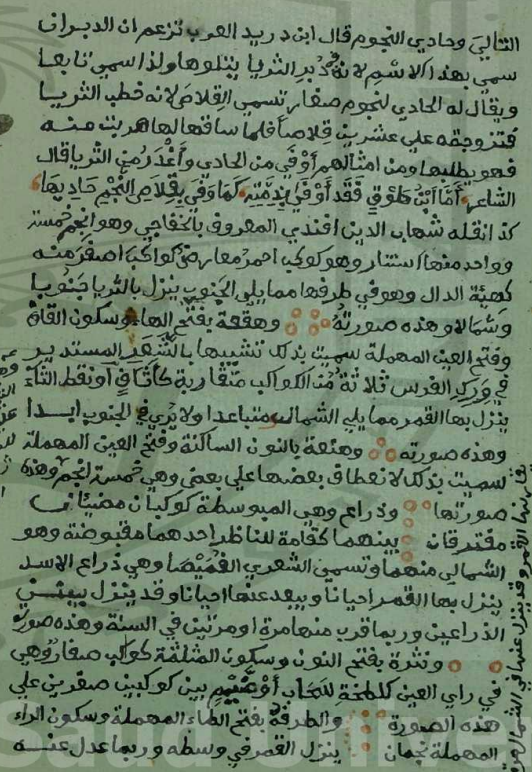 التالي وحادي النجوم قال ابن دريد العرب تزعم ان الدبران
سمي بهذا الاسم لانه دبر الثريا يتلوها ولذا سمي تابعا
ويقال له الحادي لنجوم صغار تسمي القلاص لانه خطب الثريا
فتزوجته علي عشرين قلاصا فلما ساقها لها هربت منه
فهو يطلبها ومن امثالهم أوفي من الحادي وأغدر من الثريا قال
الشاعر أما ابن طوق فقد أوفي بذمته كما وفي بقلاص النجم حاديها
كذا نقله شهاب الدين افندي المعروف بالخفاجي وهو انجم خمسة
وواحد منها استنار وهو كوكب احمر معارض كواكب اصغر منه
كهيئة الدال وهو في طرفها مما يلي الجنوب ينزل بالثريا جنوبا
وشمالا وهذه صورته وهقعة بفتح الهاء وسكون القاف
وفتح العين المهملة سميت بذلك تشبيها بالشعر المستدير
في ورك الفرس ثلاثة من الكواكب متقاربة كأثاف أو نقط الثاء
ينزل بها القمر مما يلي الشمال متباعدا ولا يري في الجنوب ابدا
وهذه صورته وهنعة بالنون الساكنة وفتح العين المهملة
سميت بذلك لانعطاف بعضها علي بعض وهي خمسة انجم وهذه
صورتها وذراع وهي المبسوطة كوكبان مضيئان
مفترقان بينهما كقامة للناظر احدهما مقبوضة وهو
الشمالي منهما وتسمي الشعري الغميصا وهي ذراع الاسد
ينزل بها القمر احيانا ويبعد عنها احيانا وقد ينزل ببين
الذراعين وربما قرب منها مرة او مرتين في السنة وهذه صورته
ونثرة بفتح النون وسكون المثلثة كواكب صغار وهي
في راي العين كلطخة سحاب أو غيم بين كوكبين صغيرين علي
هذه الصورة والطرفة بفتح الطاء المهملة وسكون الراء
المهملة نجمان ينزل القمر في وسطه وربما عدل عنه